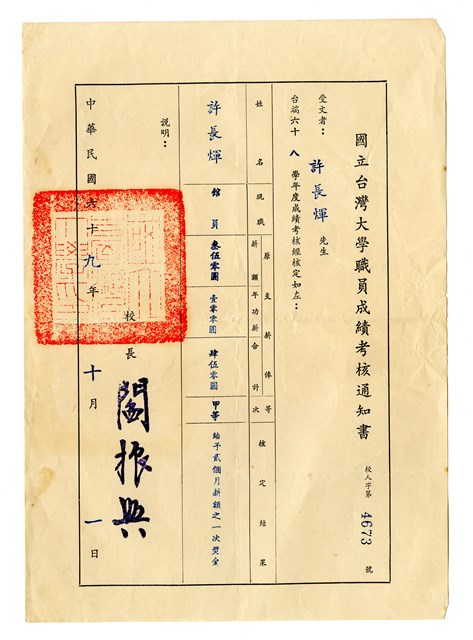 國立台灣大學職員成績考核通知書
校人字第 4673 號
受文者：許長煇 先生
台端六十八學年度成績考核經核定如左：
姓名 現職 原支薪俸 薪額 年功薪 合計 等次 核定結果
許長煇 館員 叁伍零圓 壹零零圓 肆伍零圓 甲等 給予貳個月薪額之一次獎金
說明：
校長 閻振興
中華民國六十九年十月一日